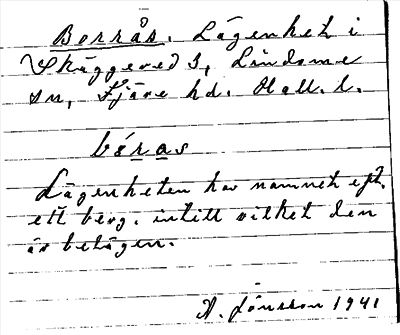 Borrås. Lägenhet i
Skäggered 3, Lindome
sn, Fjäre hd. Hall. l.
båras
Lägenheten har namnet eft.
ett berg, intill vilket den
är belägen.
A. Jönsson 1941